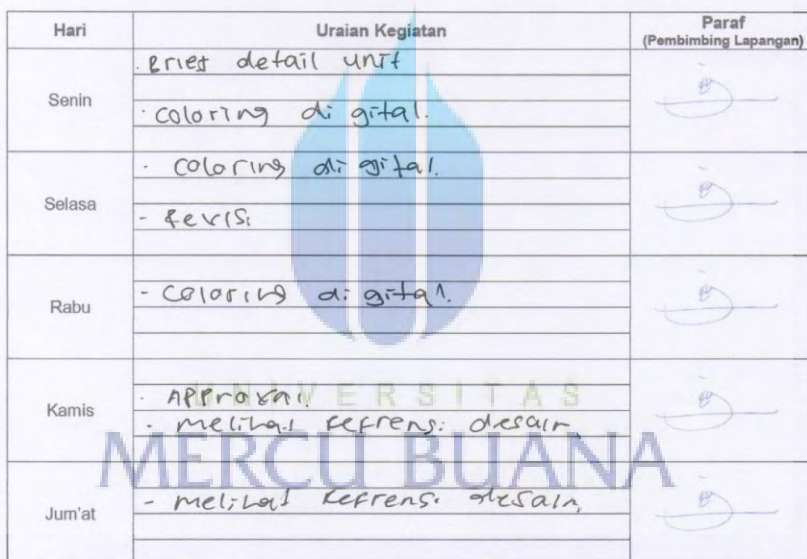 Hari Uraian Kegiatan Paraf
(Pembimbing Lapangan)
Senin
· Brief detail unit
· coloring digital.
Selasa
· coloring digital.
- Revisi
Rabu
- Coloring digital.
Kamis
· Approval.
· melihat refrensi desain
Jum'at
- melihat refrensi desain
UNIVERSITAS
MERCU BUANA